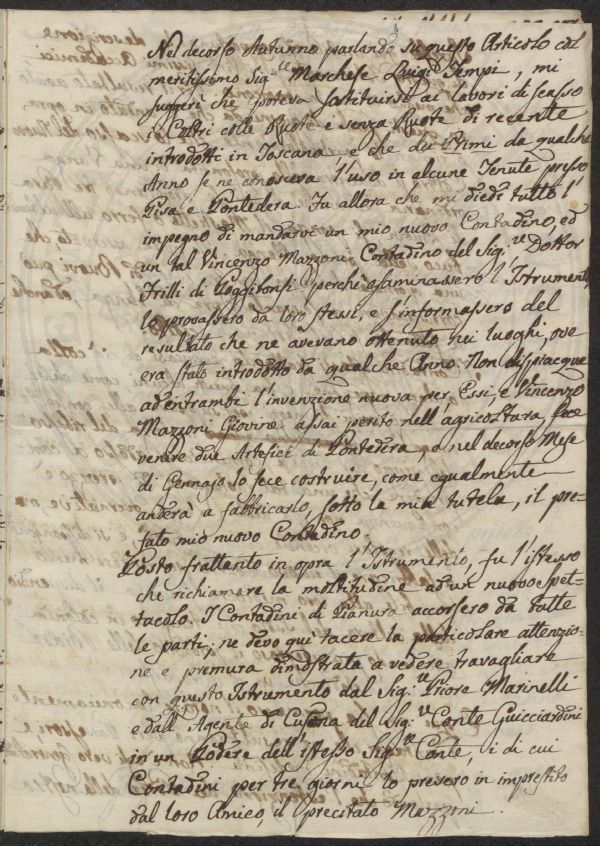 Nel decorso Autunno parlando su questo Articolo col
meritissimo Sig.re Marchese Luigi Tempi, mi
suggerì che poteva sostituirsi ai lavori di scasso
i Coltri colle Ruote e senza Ruote di recente
introdotti in Toscana e che dei Primi da qualche
Anno se ne conosceva l'uso in alcune Tenute presso
Pisa e Pontedera. Fu allora che mi diedi tutto l'
impegno di mandarvi un mio nuovo Contadino, ed
un tal Vincenzo Mazzoni Contadino del Sig.re Dottor
Frilli di Poggibonsi perchè esaminassero l'Istrumento,
lo provassero da loro stessi, e s'informassero del
resultato che ne avevano ottenuto nei luoghi, ove
era stato introdotto da qualche Anno. Non dispiacque
ad entrambi l'invenzione nuova per Essi, e Vincenzo
Mazzoni Giovine assai perito nell'agricoltura fece
venire due Artefici di Pontedera, e nel decorso Mese
di Gennajo lo fece costruire, come egualmente
anderà a fabbricarlo, sotto la mia tutela, il pre=
fato mio nuovo Contadino.
Posto frattanto in opra l'Istrumento, fu l'istesso
che richiamare la moltitudine ad un nuovo Spet=
tacolo. I Contadini di Pianura accorsero da tutte
le parti; ne devo quì tacere la particolare attenzio=
ne e premura dimostrata a vedere travagliare
con questo Istrumento dal Sig.re Priore Marinelli
e dall'Agente di Cusona del Sig.re Conte Guicciardini
in un Podere dell'istesso Sig.re Conte, i di cui
Contadini per tre giorni lo presero in imprestito
dal loro Amico, il precitato Mazzoni.